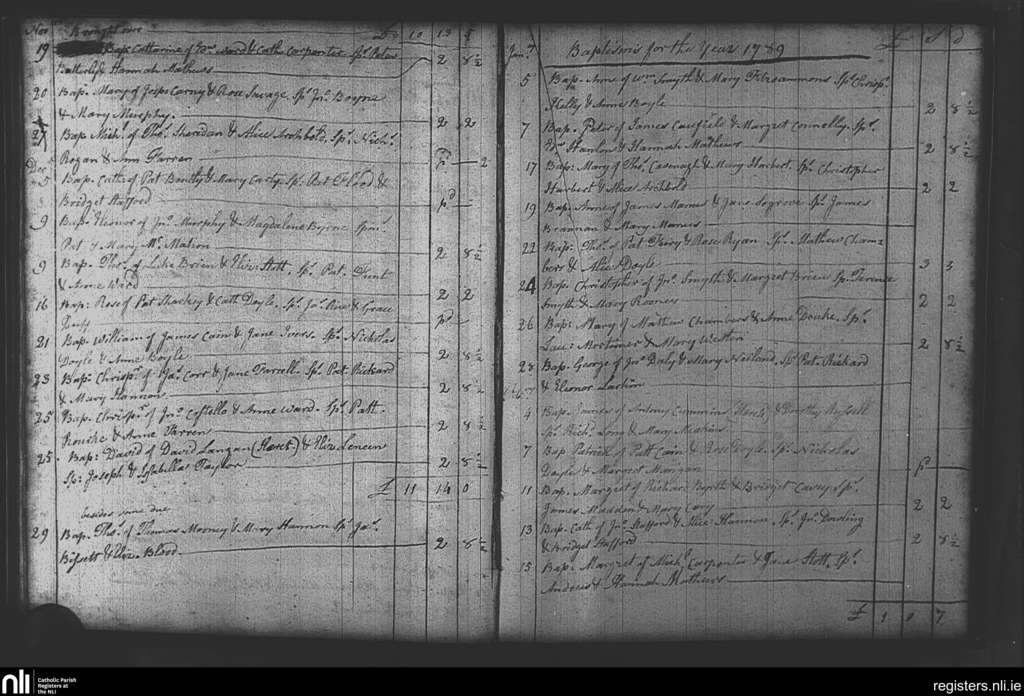 Nov. Brought over £ 10 13
19 Bap: Catharine of Wm. Ward & Cath. Carpenter Sps. Peter
Batterly & Hannah Mathews 2 8½
20 Bap. Mary of Josps. Corny & Rose Savage. Sps. Jno. Boyne
& Mary Murphy. 2 2
27 Bap. Mich. of Thos. Sheridan & Alice Archbold. Sps. Nichs.
Rogan & Ann Farren pd 2
Decr.
5 Bap. Cath. of Pat Bently & Mary Carty Sps. Pat Flood &
Bridget Stafford pd
9 Bap. Elenor of Jno. Murphy & Magdalene Byrne Spn.
Pat & Mary Mc. Mahon 2 8½
9 Bap. Thos. of Luke Brien & Eliz. Stott. Sps. Pat.
& Anne Ward 2 2
16 Bap: Rose of Pat Sharkey & Cath Doyle. Sps. Jno. & Grace
Duff pd
21 Bap. William of James Cain & Jane Ivers. Sps. Nicholas
Doyle & Anne Boyle 2 8½
23 Bap: Chrispr. of Jas. Corr & Jane Farrell. Sps. Pat. Rickard
& Mary Hannon 2 8½
25 Bap. Chrispr. of Jno. Costello & Anne Ward. Sps. Patt.
Rourke & Anne Farren 2 8½
25. Bap: David of David Langan (Heret.) & Eliz.
Sp: Joseph & Isabella Naylor 2 8½
£ 11 14 0
besides some due
29 Bap. Thos. of Thomas Mooney & Mary Hannon Sps. Jas.
Bissett & Eliz. Blood 2 8½
Jan. Baptisms for the Year 1789 £ s d
5 Bap. Anne of Wm. Smyth & Mary Fitzsammons Sps. Chrisp.
Kelly & Anne Boyle 2 8½
7 Bap. Peter of James Caufield & Margret Connolly. Sps.
Hanlon & Hannah Mathews 2 8½
17 Bap: Mary of Thos. Cavenagh & Mary Harbert. Sps. Christopher
Harbert & Alice Archbold 2 2
19 Bap. Anne of James Marnes & Jane Segrove Sps. James
Brannan & Mary Marnes
22 Bap: Thos. of Pat & Rose Ryan Sps. Mathew Cham-
bers & Alice Doyle 3 3
24 Bap. Christopher of Jno. Smyth & Margret Brien Sp: Terence
Smyth & Mary Rooney 2 2
26 Bap: Mary of Mathew Chambers & Anne Sps.
Mortimer & Mary Welton 2 8½
28 Bap. George of Jno. Daly & Mary Neiland. Sps. Pat. Rickard
& Elenor Larkin
4 Bap. James of Antony Cummins (Heret) & Dorothy Russell
Sps. Richd. Long & Mary
7 Bap Patrick of Patt Cain & Rose Doyle Sp: Nicholas
Doyle & Margret Mangan pd
11 Bap. Margret of Richard Byrth & Bridget Casey Sps.
James Madden & Mary 2 2
13 Bap. Cath of Jno. Stafford & Alice Hannon. Sps. Jno. Dowling
& Bridget Stafford 2 8½
15 Bap: Margret of Michl. Carpenter & Jane Stott. Sps.
Andrew & Hannah Mathews
£ 1 0 7
nli Catholic Parish
Registers at
the NLI
registers.nli.ie